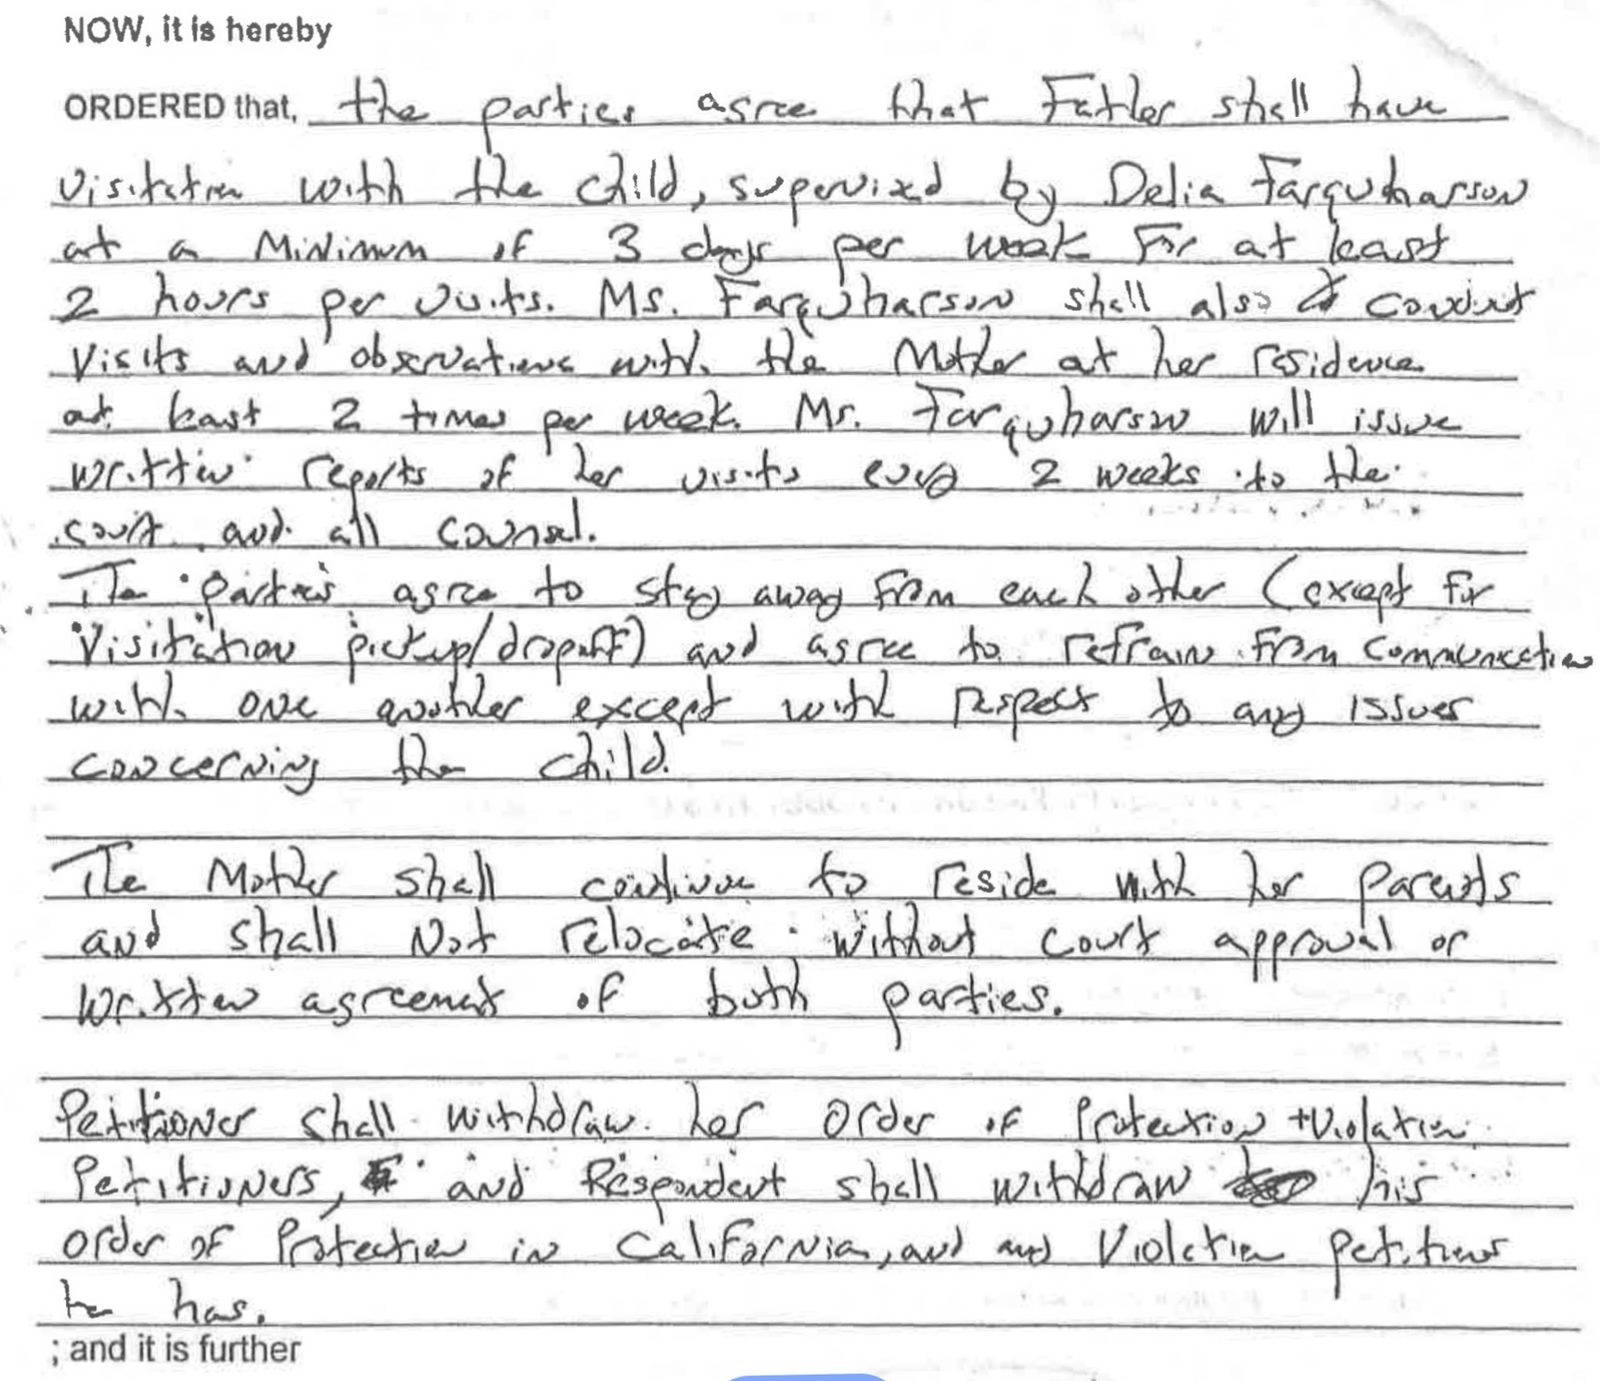 NOW, it is hereby
ORDERED that, the parties agree that Father shall have
visitation with the child, supervised by Delia Farquharson
at a Minimum of 3 days per week for at least
2 hours per visits. Ms. Farquharson shall also conduct
visits and observations with the Mother at her residence
at least 2 times per week. Ms. Farquharson will issue
written reports of her visits every 2 weeks to the
court and all counsel.
The parties agree to stay away from each other (except for
visitation pickup/dropoff) and agree to refrain from communication
with one another except with respect to any issues
concerning the child.
The Mother shall continue to reside with her parents
and shall Not relocate without court approval or
written agreement of both parties.
Petitioner shall withdraw her order of Protection + Violation
Petitioners, and Respondent shall withdraw his
order of Protection in California, and any Violation petitions
he has.
; and it is further